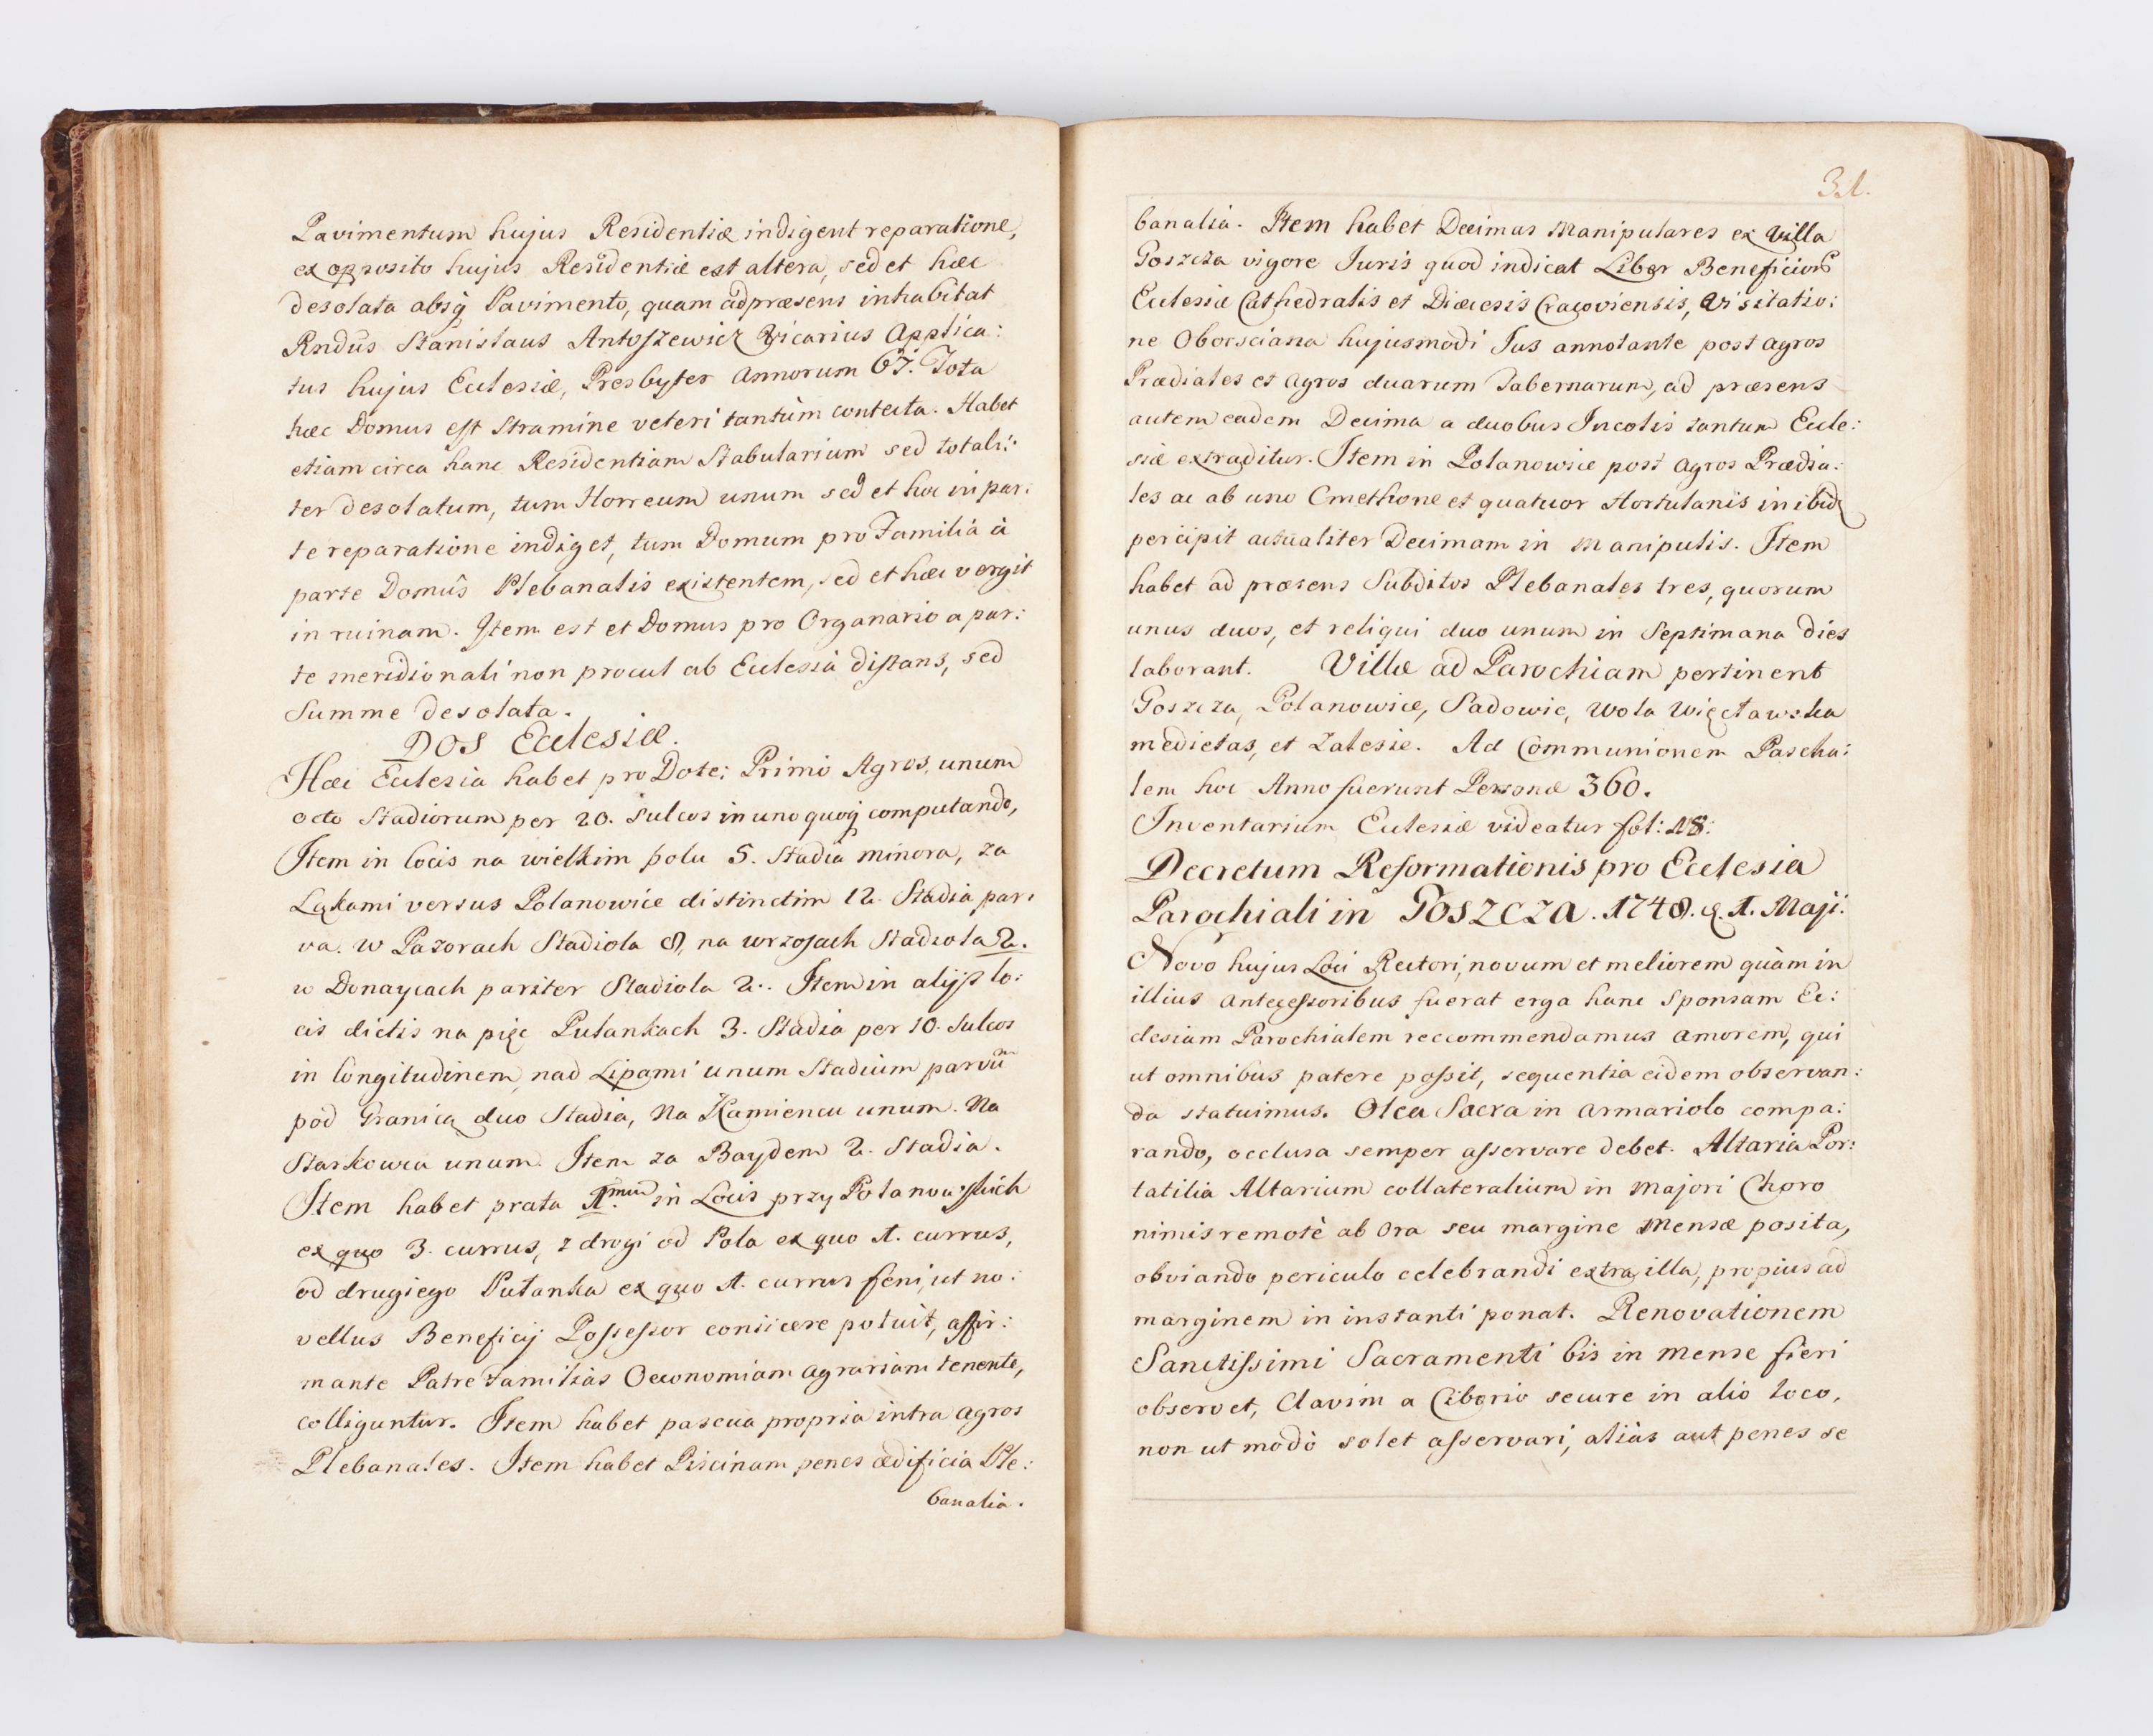 Pavimentum hujus Residentiæ indigent reparatione,
ex opposito hujus Residentiæ est altera, sed et hæc
desolata absq Pavimento, quam ad præsens inhabitat
Rndûs Stanislaus Antoszewicz Vicarius Applica:
tus hujus Ecclesiæ, Presbyter Annorum 67. Tota
hæc Domus est Stramine veteri tantùm contecta. Habet
etiam circa hanc Residentiam Stabularium sed totali:
ter desolatum, tum Horreum unum sed et hoc in par:
te reparatione indiget, tum Domum pro Familiâ à
parte Domûs Plebanalis existentem, sed et hæc vergit
in ruinam. Item est et Domus pro Organario a par:
te meridionali non procul ab Ecclesiâ distans, sed
Summe desolata.
DOS Ecclesiæ.
Hæc Ecclesia habet pro Dote; Primò Agros, unum
octo Stadiorum per 20. Sulcos in uno quoq computando,
Item in locis na wielkim polu 5. Stadia minora, za
Łąkami versus Polanowice distinctim 12. Stadia par:
va. w Pazorach Stadiola 8, na wrzosach Stadiola 2.
w Donaycach pariter Stadiola 2.. Item in alijs lo:
cis dictis na pięc Pulankach 3. Stadia per 10. Sulcos
in longitudinem, nad Lipami unum Stadium parvũ
pod Granicą duo Stadia, Na Kamiencu unum. Na
Starkowcu unum. Item za Baydem 2. Stadia.
Item habet prata 1mum in Locis przy Polanowskich
ex quo 3. currus, z drogi od Pola ex quo 1. currus,
od drugiego Pulanka ex quo 1. currus feni, ut no:
vellus Beneficij Possessor conjicere potuit, affir:
mante Patre familias Oeconomiam agrariam tenente,
colliguntur. Item habet pascua propria intra agros
Plebanales. Item habet Piscinam penes ædificia Ple:
banalia.
31.
banalia. Item habet Decimas Manipulares ex Villa
Goszcza vigore Juris quod indicat Liber Beneficior
Ecclesiæ Cathedralis et Diæcesis Cracoviensis, Visitatio:
ne Oborsciana hujusmodi Jus annotante post agros
Prædiales et agros duarum Tabernarum, ad præsens
autem eadem Decima a duobus Incolis tantum Eccle:
siæ extraditur. Item in Polanowice post agros Prædia:
les ac ab uno Cmethone et quatuor Hortulanis in ibid
percipit actualiter Decimam in Manipulis. Item
habet ad præsens Subditos Plebanales tres, quorum
unus duos, et reliqui duo unum in Septimana dies
laborant. Villæ ad Parochiam pertinent
Goszcza, Polanowice, Sadowie, Wola Więcławska
medietas, et Zalesie. Ad Communionem Pascha:
lem hoc Anno fuerunt Personæ 360.
Inventarium Ecclesiæ videatur fol: 18:
Decretum Reformationis pro Ecclesia
Parochiali in Goszcza. 1748. d. 1. Maji.
Novo hujus Loci Rectori, novum et meliorem quàm in
illius antecessoribus fuerat erga hanc Sponsam Ec:
clesiam Parochialem reccommendamus amorem, qui
ut omnibus patere possit, sequentia eidem observan:
da statuimus. Olea Sacra in armariolo compa:
rando, occlusa semper asservare debet. Altaria Por:
tatilia Altarium collateralium in majori Choro
nimis remotè ab ora seu margine Mensæ posita,
obviando periculo celebrandi extra illa, propius ad
marginem in instanti ponat. Renovationem
Sanctissimi Sacramenti bis in mense fieri
observet, Clavim a Ciborio secure in alio loco,
non ut modò solet asservari, aliàs aut penes se